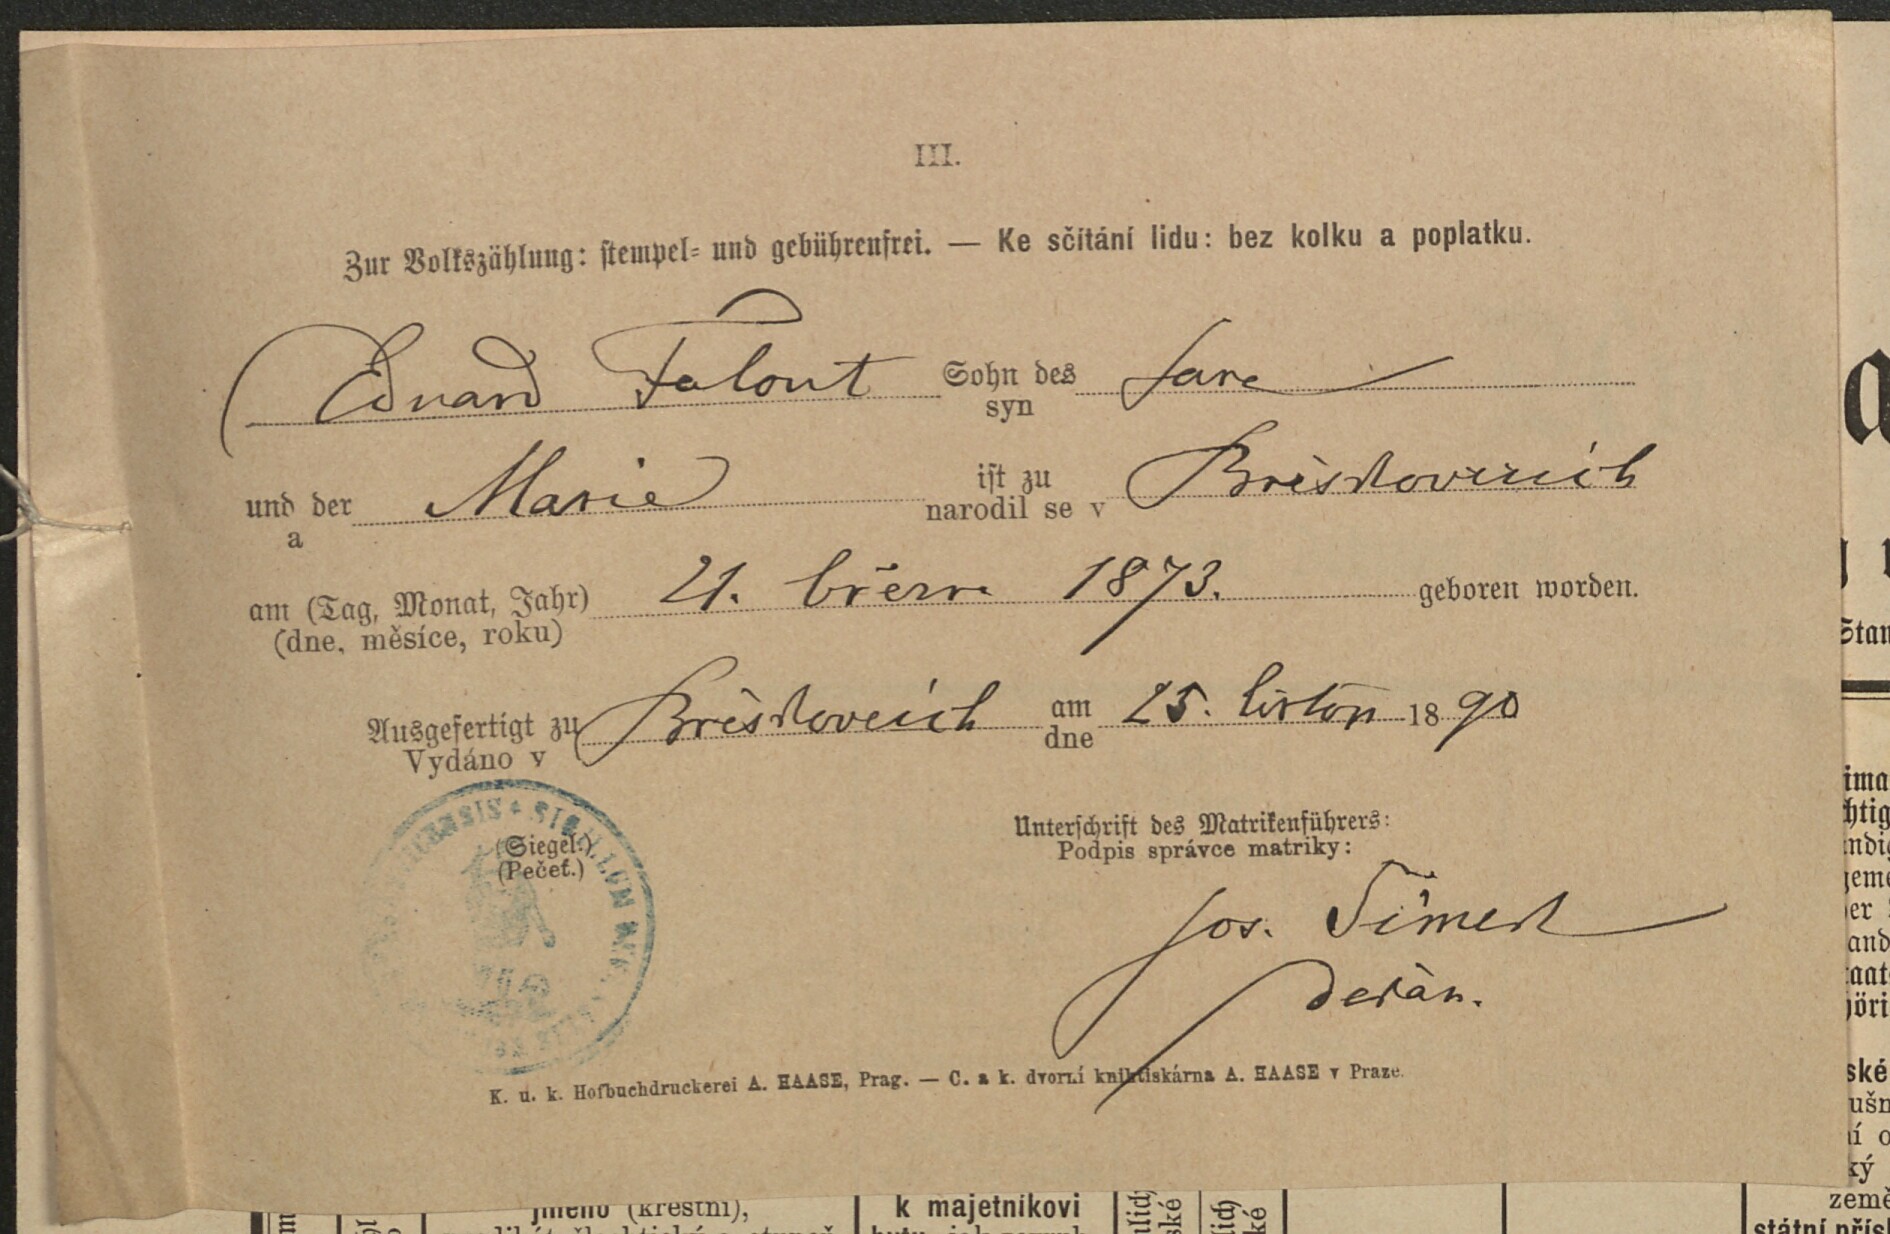 III.
Zur Volkszählung: stempel- und gebührenfrei. — Ke sčítání lidu: bez kolku a poplatku.
Eduard Falout Sohn des
syn
und der Marie ist zu
a narodil se v
am (Tag, Monat, Jahr) 21. března 1873. geboren worden.
(dne, měsíce, roku)
Ausgefertigt zu am 25. listop 1890
Vydáno v dne
(Siegel.)
(Pečeť.)
SIGILLUM
Unterschrift des Matrikenführers:
Podpis správce matriky:
Jos. Šimek
děkan.
K. u. k. Hofbuchdruckerei A. HAASE, Prag. — C. a k. dvorní knihtiskárna A. HAASE v Praze.
jméno (křestní),
k majetníkovi
země